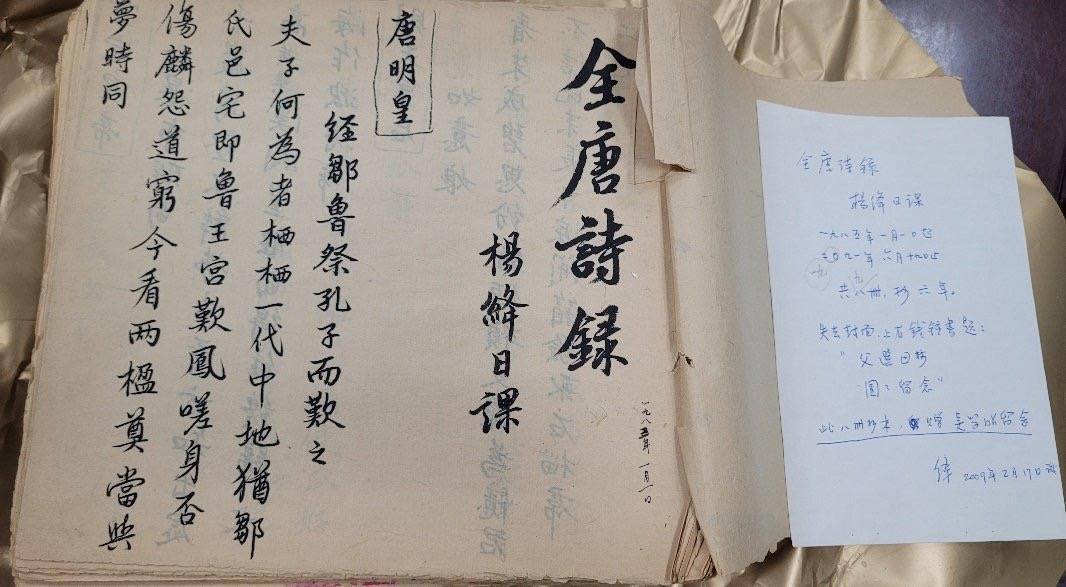 一九八五年一月一日
全唐詩録
楊絳日課
唐明皇
經鄒魯祭孔子而歎之
夫子何為者栖栖一代中地猶鄒
氏邑宅即魯王宮歎鳳嗟身否
傷麟怨道窮今看两楹奠當與
夢時同
全唐诗錄
楊绛日课
一九八五年一月一日起
九一年六月十九日止
共八册,抄六年。
失去封面,上有钱锺書题:
"父選母抄
圆圆留念"
此八册抄本,赠吴学昭留念
绛 2009年2月17日